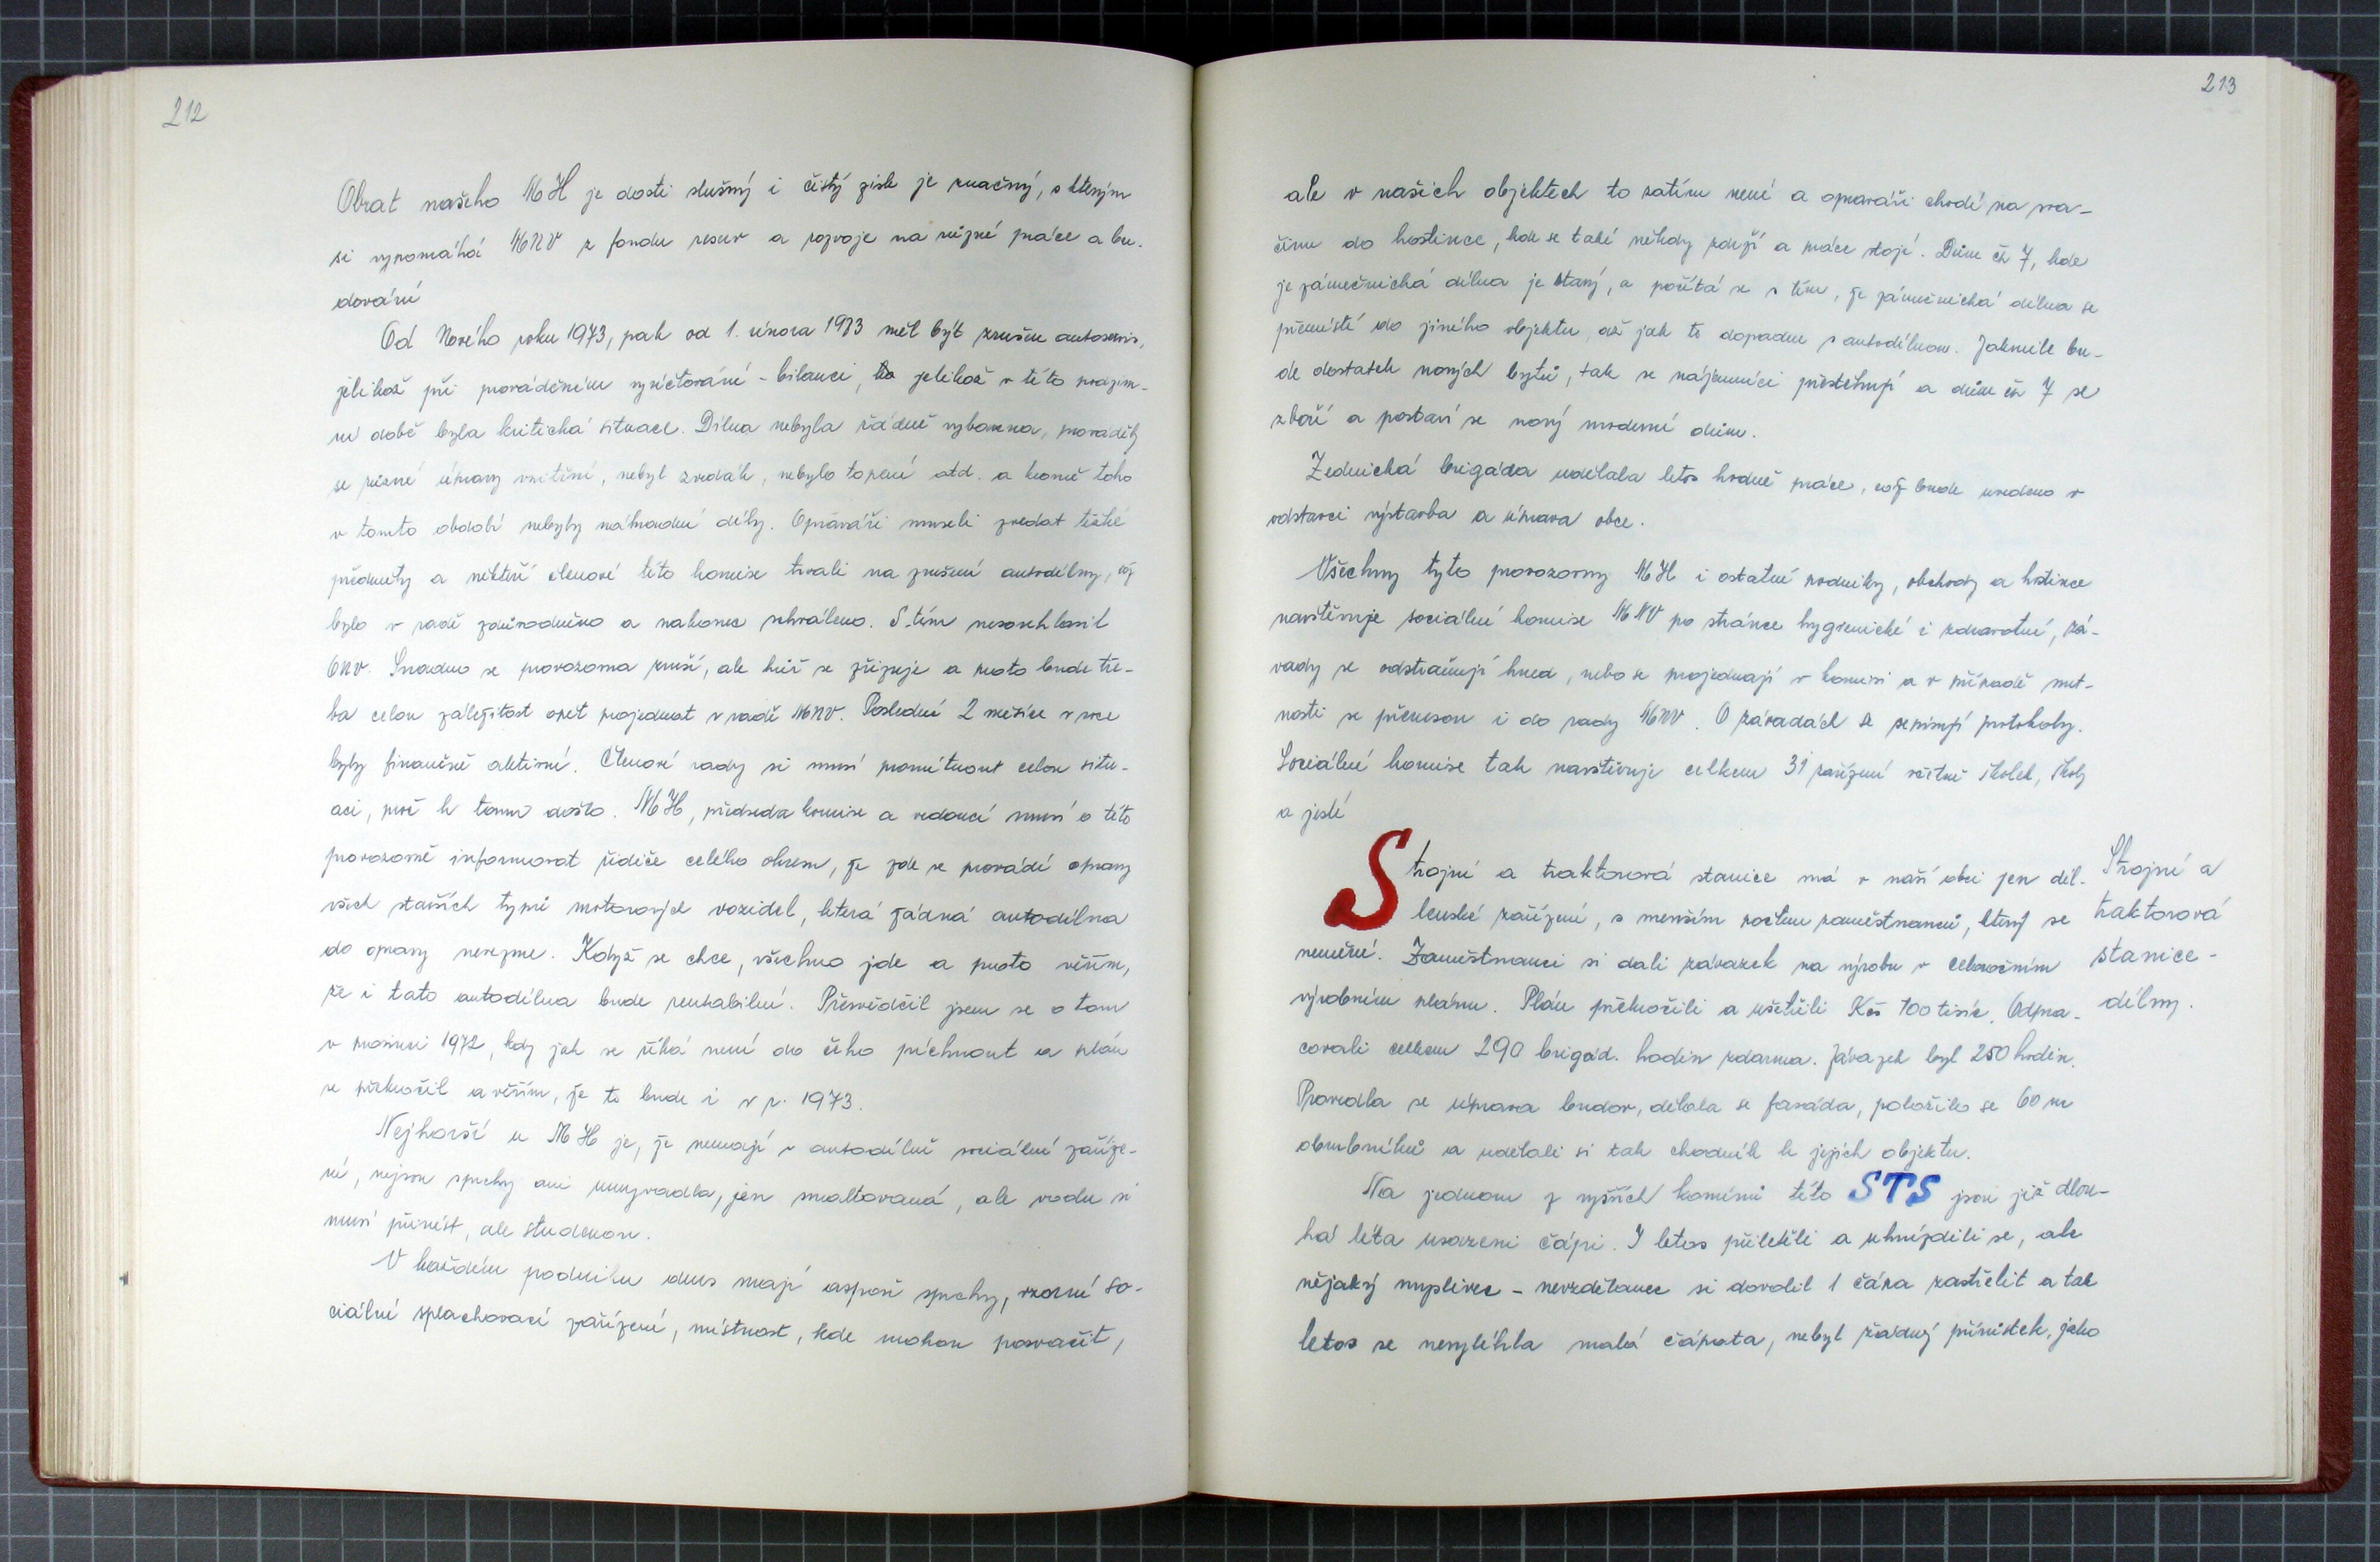 212
Obrat našeho MH je dosti slušný i čistý zisk je značný, s kterým
si vypomáhá MNV z fondu reserv a rozvoje na různé práce a bu-
dování
Od Nového roku 1973, pak od 1. února 1973 měl být zrušen autoservis,
jelikož při prováděném vyúčtování - bilanci, jelikož v této podzim-
ní době byla kritická situace. Dílna nebyla řádně vybavena, prováděly
se různé úpravy vnitřní, nebyl zvedák, nebylo topení atd. a kromě toho
v tomto období nebyly náhradní díly. Opraváři museli zvedat těžké
předměty a někteří členové této komise trvali na zrušení autodílny, což
bylo v radě zdůvodněno a nakonec schváleno. S tím nesouhlasil
ONV. Snadno se provozovna zruší, ale hůř se zřizuje a proto bude tře-
ba celou záležitost opět projednat v radě MNV. Poslední 2 měsíce v roce
byly finančně aktivní. Členové rady si musí promítnout celou situ-
aci, proč k tomu došlo. MH, předseda komise a vedoucí musí o této
provozovně informovat řidiče celého okresu, že zde se provádí opravy
všech starších typů motorových vozidel, která žádná autodílna
do opravy nevezme. Když se chce, všechno jde a proto věřím,
že i tato autodílna bude rentabilní. Přesvědčil jsem se o tom
v prosinci 1972, kdy jak se říká není do čeho píchnout a plán
se překročil a věřím, že to bude i v r. 1973.
Nejhorší u MH je, že nemají v autodílně sociální zaříze-
ní, nejsou sprchy ani umyvadla, jen smaltovaná, ale vodu si
musí přinést, ale studenou.
V každém podniku dnes mají aspoň sprchy, vzorné so-
ciální splachovací zařízení, místnost, kde mohou posvačit,
213
ale v našich objektech to zatím není a opraváři chodí na sva-
činu do hostince, kde se také někdy zdrží a práce stojí. Dům čs 7, kde
je zámečnická dílna je starý, a počítá se s tím, že zámečnická dílna se
přemístí do jiného objektu, až jak to dopadne s autodílnou. Jakmile bu-
de dostatek nových bytů, tak se nájemníci přestěhují a dům čs 7 se
zboří a postaví se nový moderní dům.
Zednická brigáda udělala letos hodně práce, což bude uvedeno v
odstavci výstavba a úprava obce.
Všechny tyto provozovny MH i ostatní podniky, obchody a hostince
navštěvuje sociální komise MNV po stránce hygienické i zdravotní, zá-
vady se odstraňují hned, nebo se projednají v komisi a v případě nut-
nosti se přenesou i do rady MNV. O závadách se sepisují protokoly.
Sociální komise tak navštěvuje celkem 31 zařízení včetně školek, školy
a jeslí
Strojní a traktorová stanice má v naší obci jen díl-
lenské zařízení, s menším počtem zaměstnanců, který se
nemění. Zaměstnanci si dali závazek na výrobu v celoročním
výrobním plánu. Plán překročili a ušetřili Kčs 100 tisíc. Odpra-
covali celkem 290 brigád. hodin zdarma. Závazek byl 250 hodin.
Provedla se úprava budov, dělala se fasáda, položilo se 60 m
obrubníků a udělali si tak chodník k jejich objektu.
Na jednom z vyšších komínů této STS jsou již dlou-
há léta usazeni čápi. I letos přiletěli a uhnízdili se, ale
nějaký myslivec - nevzdělanec si dovolil 1 čápa zastřelit a tak
letos se nevylíhla malá čápata, nebyl žádný přírůstek, jako
Strojní a
traktorová
stanice -
dílny.